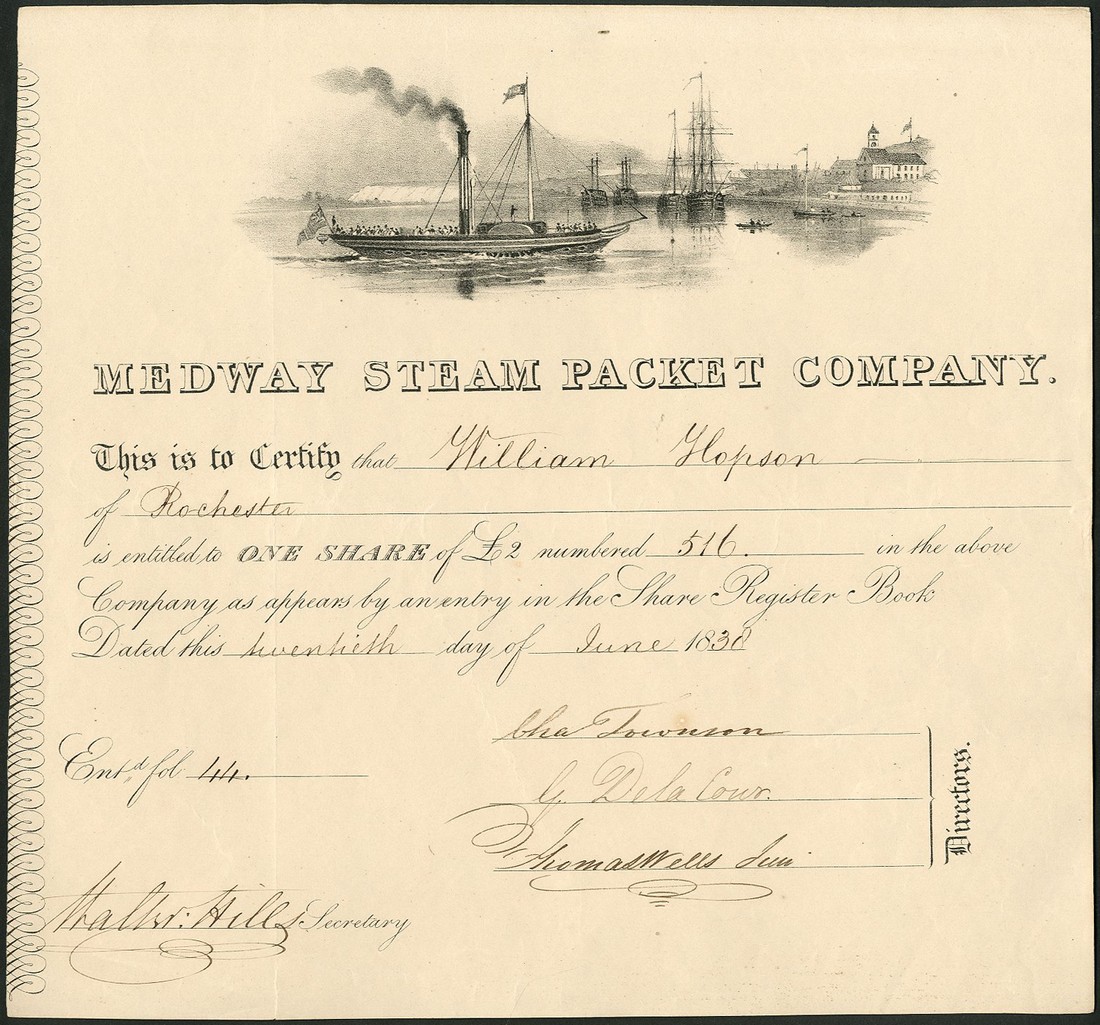 MEDWAY STEAM PACKET COMPANY.
This is to Certify that William Hopson
of Rochester
is entitled to ONE SHARE of £2 numbered 516. in the above
Company as appears by an entry in the Share Register Book
Dated this twentieth day of June 1838
Cha Townson
G. Dela Cour.
Entd. fol. 44.
Thomas Wells Jun
Directors.
Walter Hills Secretary